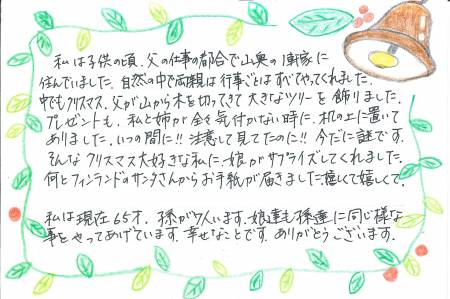 私は子供の頃、父の仕事の都合で山奥の1軒家に
住んでいました。自然の中で両親は行事ごとはすべてやってくれました。
中でもクリスマス。父が山から木を切ってきて大きなツリーを飾りました。
プレゼントも、私と姉が全く気付かない時に、机の上に置いて
ありました。いつの間に!!注意して見てたのに!!今だに謎です。
そんなクリスマス大好きな私に、娘がサプライズしてくれました。
何とフィンランドのサンタさんからお手紙が届きました。嬉しくて嬉しくて。
私は現在65才。孫が7人います。娘達も孫達に同じ様な
事をやってあげています。幸せなことです。ありがとうございます。